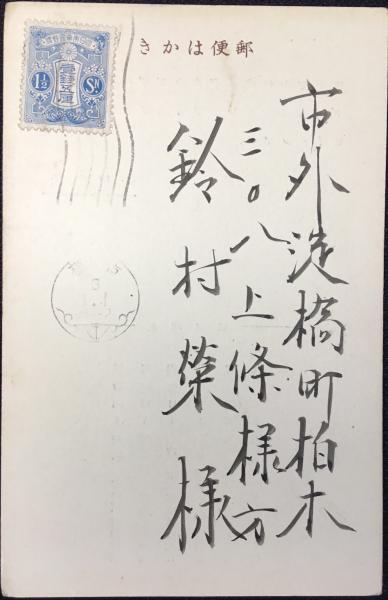 郵便はかき
市外淀橋町柏木
三〇八上條様方
鈴村榮様
1½ Sn